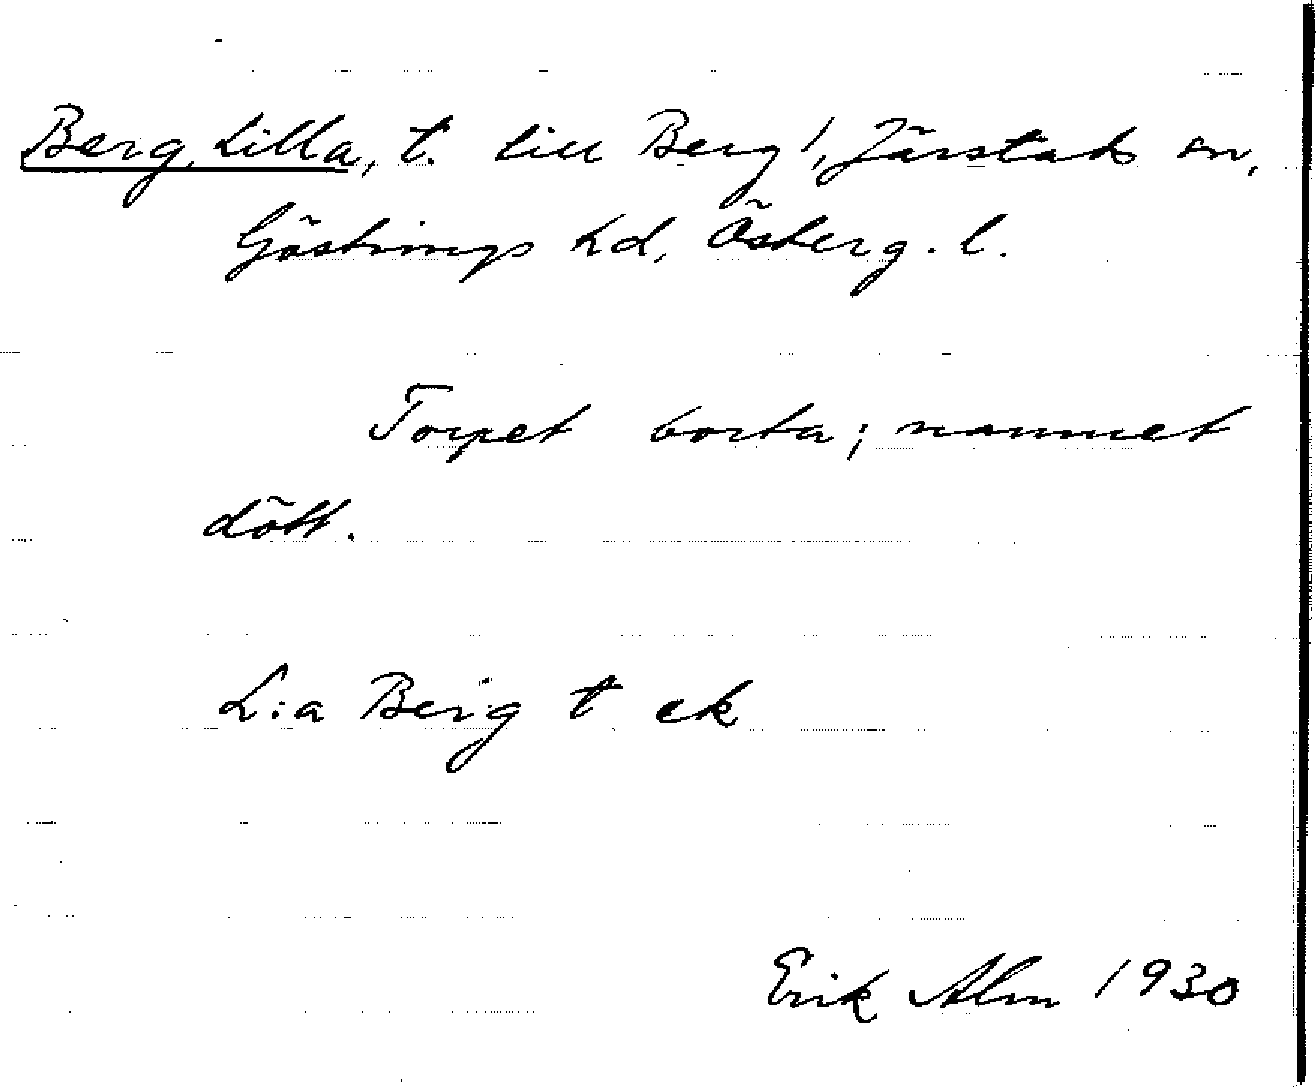 Berg, Lilla, t. till Berg¹, Järstads sn,
Göstrings hd, Österg. l.
Torpet borta; namnet
dött.
L:a Berg t ek
Erik Alm 1930